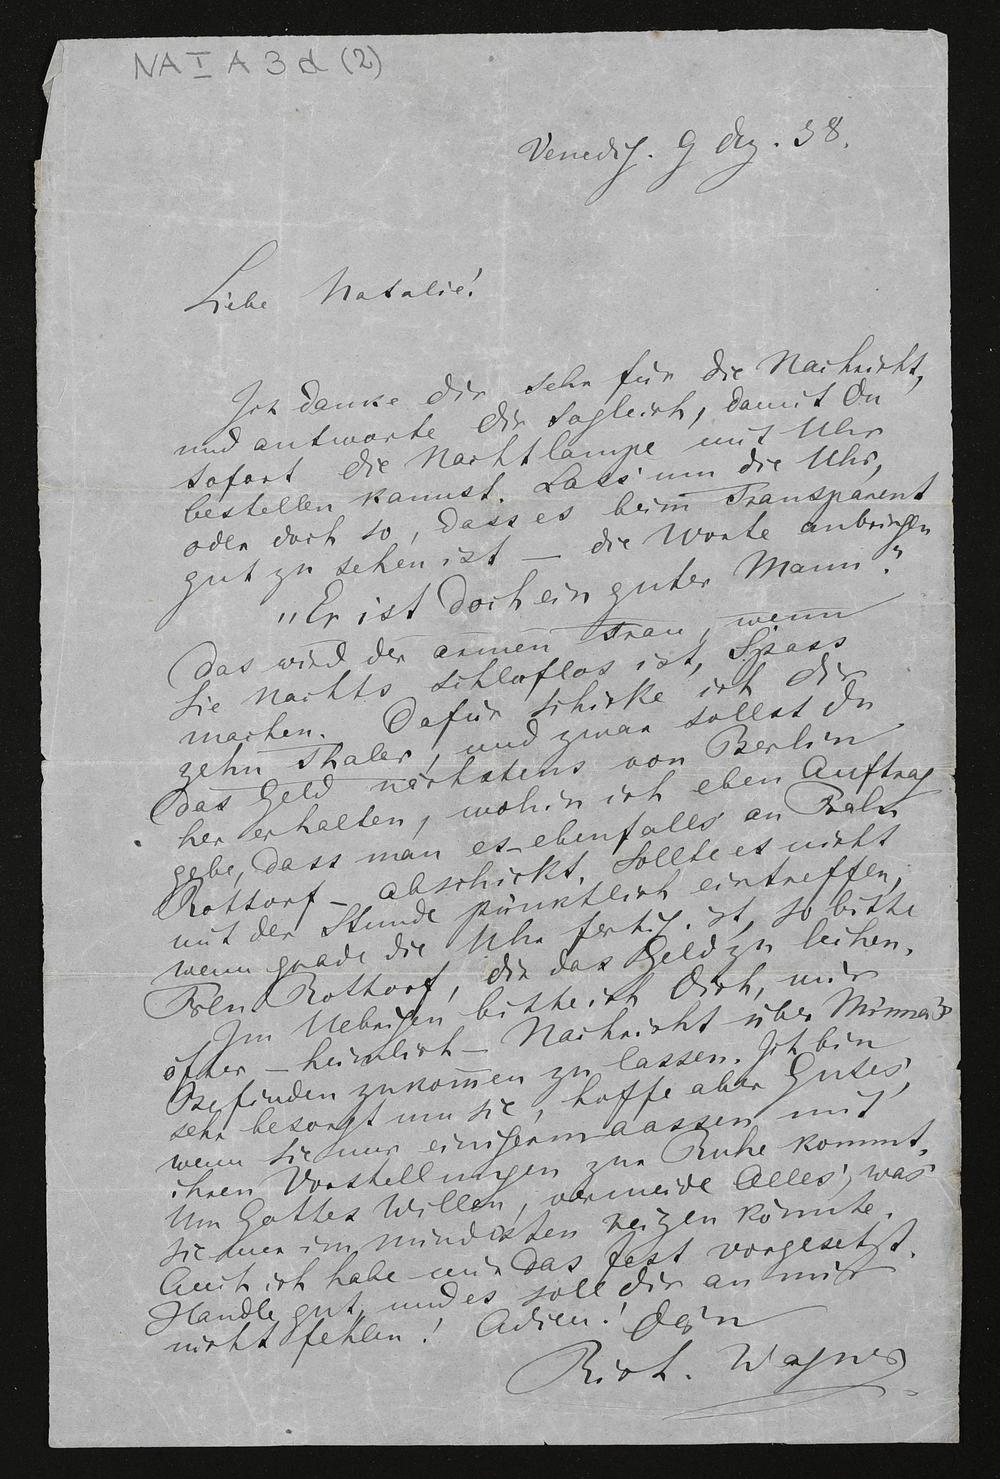 NA I A 3 d (2)
Venedig. 9 Dez. 58.
Liebe Natalie!
Ich danke Dir sehr für die Nachricht,
und antworte Dir sogleich, damit Du
sofort die Nachtlampe mit Uhr
bestellen kannst. Lass' um die Uhr,
oder doch so, dass es beim Transparent
gut zu sehen ist — die Worte anbringen
"Er ist doch ein guter Mann".
Das wird der armen Frau, wenn
sie Nachts schlaflos ist, Spass
machen. Dafür schicke ich Dir
zehn Thaler, und zwar sollst Du
das Geld nächstens von Berlin
her erhalten, wohin ich eben Auftrag
gebe, dass man es ebenfalls an
Rottorf — abschickt. Sollte es nicht
mit der Stunde pünktlich eintreffen,
wenn grade die Uhr fertig ist, so bitte
Frln Rottorf, dir das Geld zu leihen.
Im Uebrigen bitte ich Dich, mir
öfter — heimlich — Nachricht über Minna's
Befinden zukommen zu lassen. Ich bin
sehr besorgt um sie, hoffe aber Gutes,
wenn sie nur einigermaassen mit
ihren Vorstellungen zur Ruhe kommt.
Um Gottes Willen, vermeide Alles, was
sie nur im mindesten reizen könnte.
Auch ich habe mir das fest vorgesetzt.
Handle gut, und es soll dir an mir
nicht fehlen! Adieu! Dein
Rich. Wagner